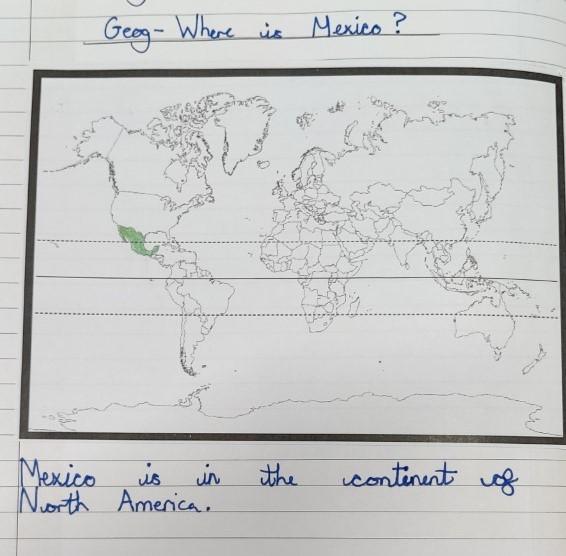 Geog- Where is Mexico?
Mexico is in the continent of
North America.